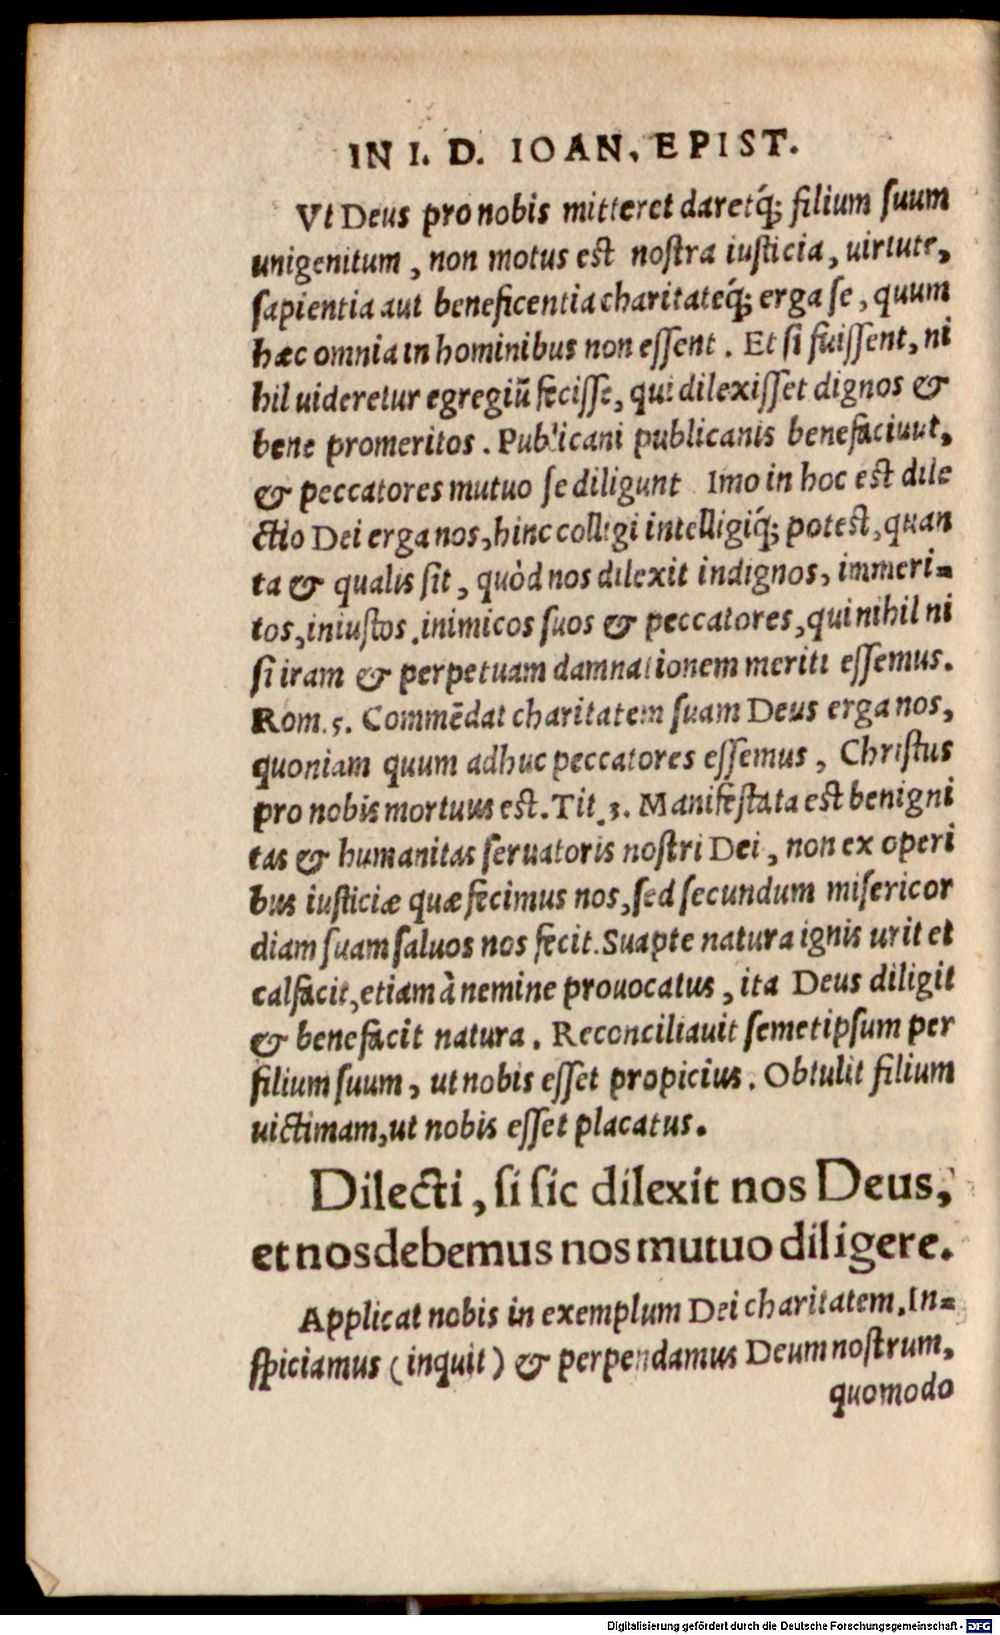 IN I. D. IOAN. EPIST.
Vt Deus pro nobis mitteret daretq́; filium ſuum
unigenitum, non motus est noſtra iuſticia, uirtute,
ſapientia aut beneficentia charitateq́; erga ſe, quum
hæc omnia in hominibus non eſſent. Et ſi fuiſſent, ni
hil uideretur egregiũ feciſſe, qui dilexiſſet dignos &
bene promeritos. Publicani publicanis benefaciuut,
& peccatores mutuo ſe diligunt Imo in hoc est dile
ctio Dei erga nos, hinc colligi intelligiq́; potest, quan
ta & qualis ſit, quòd nos dilexit indignos, immeri=
tos, iniuſtos, inimicos ſuos & peccatores, qui nihil ni
ſi iram & perpetuam damnationem meriti eſſemus.
Rom. 5. Commēdat charitatem ſuam Deus erga nos,
quoniam quum adhuc peccatores eſſemus, Chriſtus
pro nobis mortuus est. Tit. 3. Manifeſtata est benigni
tas & humanitas ſeruatoris noſtri Dei, non ex operi
bus iuſticiæ quæ fecimus nos, ſed ſecundum miſericor
diam ſuam ſaluos nos fecit. Suapte natura ignis urit et
calfacit, etiam à nemine prouocatus, ita Deus diligit
& benefacit natura. Reconciliauit ſemetipſum per
filium ſuum, ut nobis eſſet propicius. Obtulit filium
uictimam, ut nobis eſſet placatus.
Dilecti, ſi ſic dilexit nos Deus,
et nos debemus nos mutuo diligere.
Applicat nobis in exemplum Dei charitatem. In=
ſpiciamus (inquit) & perpendamus Deum noſtrum,
quomodo
Digitalisierung gefördert durch die Deutsche Forschungsgemeinschaft - DFG